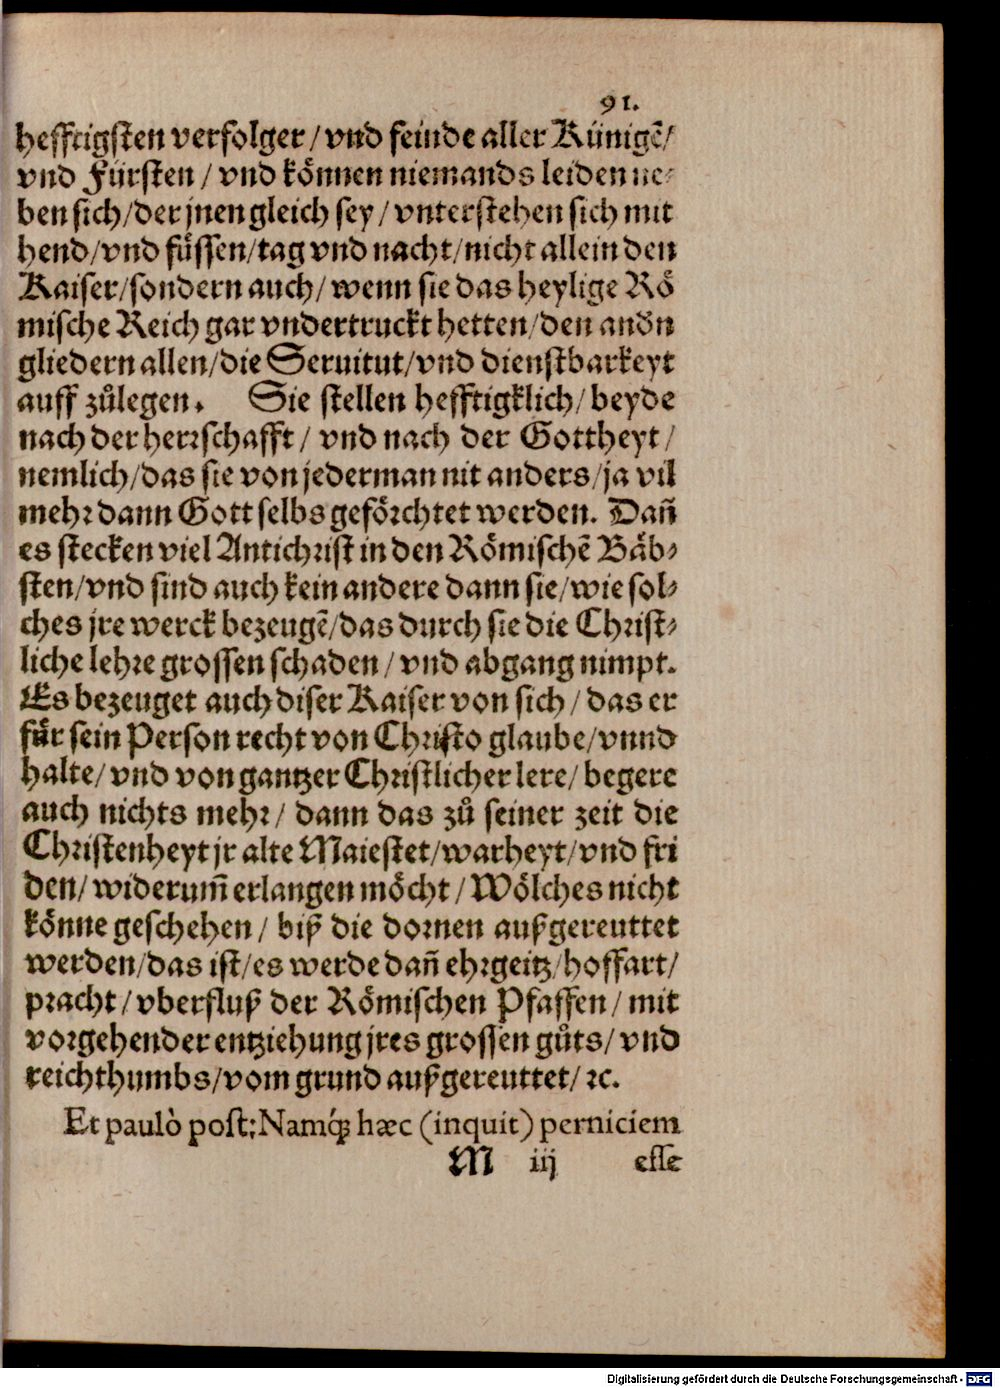 91.
hefftigsten verfolger / vnd feinde aller Künigẽ/
vnd Fürsten / vnd können niemands leiden ne⸗
ben sich/der jnen gleich sey / vnterstehen sich mit
hend/vnd fuͤssen/tag vnd nacht/nicht allein den
Kaiser/sondern auch/ wenn sie das heylige Roͤ
mische Reich gar vndertruckt hetten/den andn
gliedern allen/die Seruitut/vnd dienstbarkeyt
auff zuͦlegen. Sie stellen hefftigklich/ beyde
nach der herrschafft / vnd nach der Gottheyt /
nemlich/das sie von jederman nit anders/ja vil
mehr dann Gott selbs gefoͤrchtet werden. Dañ
es stecken viel Antichrist in den Roͤmischẽ Baͤb⸗
sten/vnd sind auch kein andere dann sie/wie sol⸗
ches jre werck bezeugẽ/das durch sie die Christ⸗
liche lehre grossen schaden / vnd abgang nimpt.
Es bezeuget auch diser Kaiser von sich / das er
fuͤr sein Person recht von Christo glaube/vnnd
halte/ vnd von gantzer Christlicher lere/ begere
auch nichts mehr / dann das zuͦ seiner zeit die
Christenheyt jr alte Maiestet/warheyt/vnd fri
den/ widerum̃ erlangen moͤcht / Woͤlches nicht
koͤnne geschehen / biß die dornen außgereuttet
werden/das ist/es werde dañ ehrgeitz/hoffart/
pracht / vberfluß der Roͤmischen Pfaffen / mit
vorgehender entziehung jres grossen guͦts/ vnd
reichthumbs/vom grund außgereuttet/ ꝛc.
Et paulò post; Namq́; hæc (inquit) perniciem
M iij esse
Digitalisierung gefördert durch die Deutsche Forschungsgemeinschaft - DFG